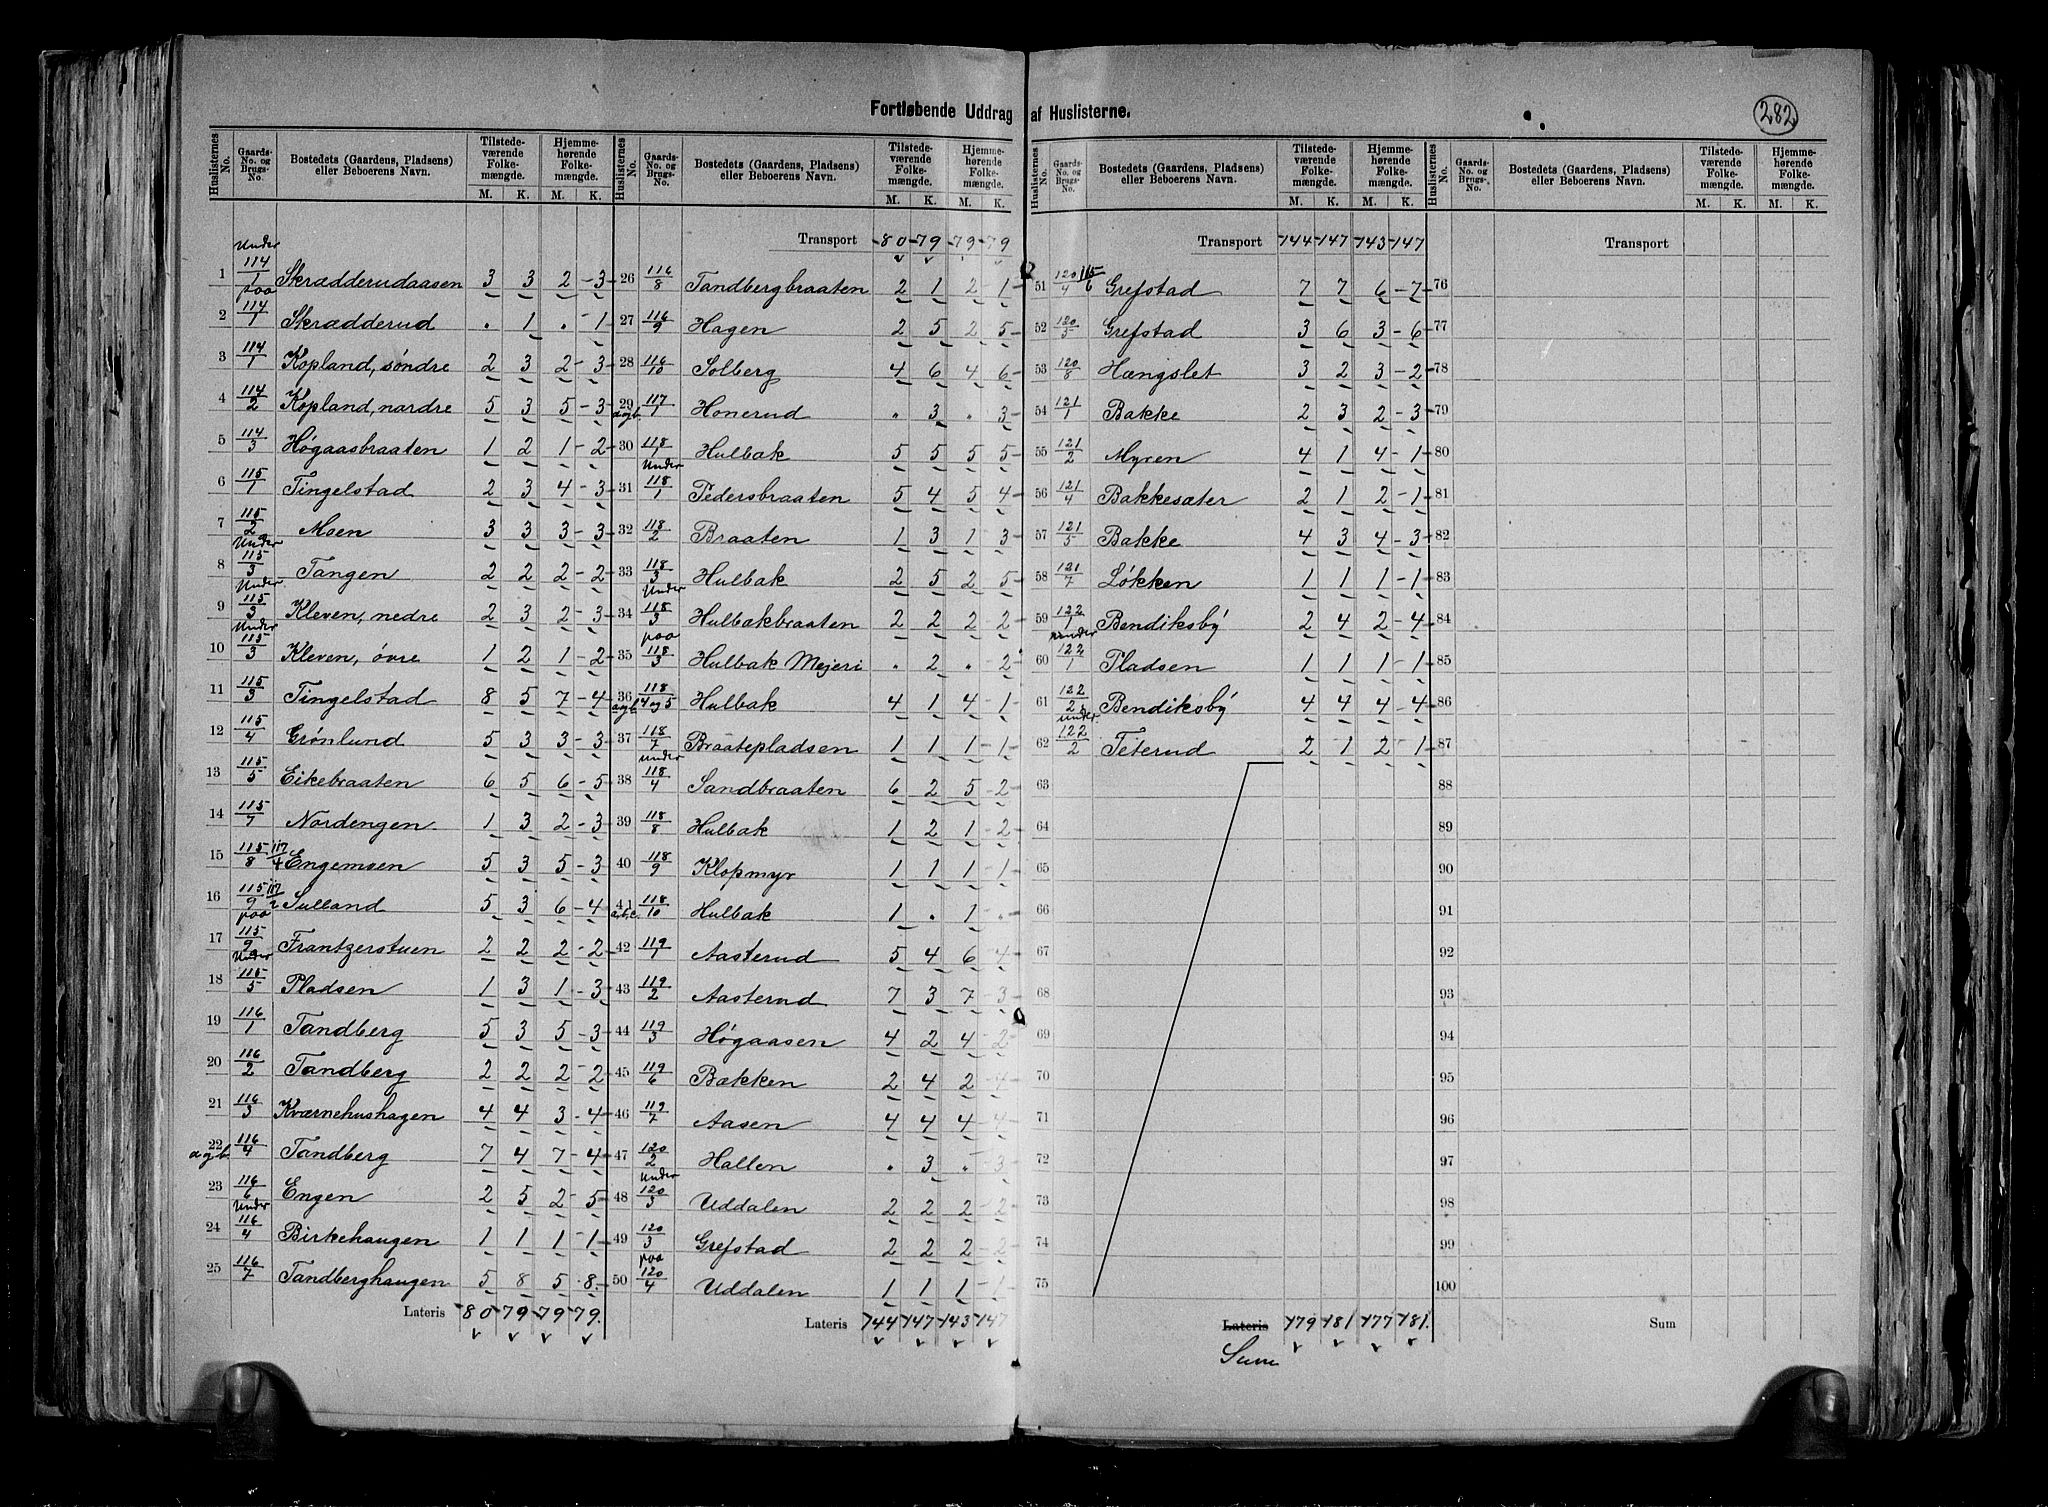 Fortløbende Uddrag af Huslisterne.
282
Huslisternes No. | Gaards-No. og Brugs-No. | Bostedets (Gaardens, Pladsens) eller Beboerens Navn. | Tilstede-værende Folke-mængde. M. K. | Hjemme-hørende Folke-mængde. M. K.
1 Under 114/1 Skrædderudaasen 3 3 2 - 3
2 paa 114/1 Skrædderud . 1 . - 1
3 114/1 Kopland, søndre 2 3 2 - 3
4 114/2 Kopland, nordre 5 3 5 - 3
5 114/3 Høgaasbraaten 1 2 1 - 2
6 115/1 Tingelstad 2 3 4 - 3
7 115/2 Moen 3 3 3 - 3
8 Under 115/3 Tangen 2 2 2 - 2
9 Under 115/3 Kleven, nedre 2 3 2 - 3
10 Under 115/3 Kleven, øvre 1 2 1 - 2
11 115/3 Tingelstad 8 5 7 - 4
12 115/4 Grønlund 5 3 3 - 3
13 115/5 Eikebraaten 6 5 6 - 5
14 115/7 Nordengen 1 3 2 - 3
15 115/8 117/4 Engemoen 5 3 5 - 3
16 115/9 117/2 Sulland 5 3 6 - 4
17 paa 115/9 Frantzerstuen 2 2 2 - 2
18 Under 115/5 Pladsen 1 3 1 - 3
19 116/1 Tandberg 5 3 5 - 3
20 116/2 Tandberg 2 2 2 - 2
21 116/3 Kværnehushagen 4 4 3 - 4
22 a og b. 116/4 Tandberg 7 4 7 - 4
23 116/6 Engen 2 5 2 - 5
24 Under 116/4 Birkehaugen 1 1 1 - 1
25 116/7 Tandberghaugen 5 8 5 - 8.
Lateris 80 79 79 79.
Huslisternes No. | Gaards-No. og Brugs-No. | Bostedets (Gaardens, Pladsens) eller Beboerens Navn. | Tilstede-værende Folke-mængde. M. K. | Hjemme-hørende Folke-mængde. M. K.
Transport 80 79 79 79
26 116/8 Tandbergbraaten 2 1 2 - 1
27 116/9 Hagen 2 5 2 5
28 116/10 Solberg 4 6 4 6
29 a og b. 117/1 Honerud . 3 . 3
30 118/1 Hulbak 5 5 5 5
31 Under 118/1 Pedersbraaten 5 4 5 4
32 118/2 Braaten 1 3 1 3
33 118/3 Hulbak 2 5 2 5
34 Under 118/3 Hulbakbraaten 2 2 2 - 2
35 paa 118/3 Hulbak Mejeri . 2 . - 2
36 a og b. 118/4 og 5 Hulbak 4 1 4 - 1
37 118/7 Braatepladsen 1 1 1 - 1
38 under 118/4 Sandbraaten 6 2 5 - 2
39 118/8 Hulbak 1 2 1 - 2
40 118/9 Klopmyr 1 1 1 - 1
41 a,b,c. 118/10 Hulbak 1 . 1 - .
42 119/1 Aasterud 5 4 6 - 4
43 119/2 Aasterud 7 3 7 - 3
44 119/3 Høgaasen 4 2 4 - 2
45 119/6 Bakken 2 4 2 - 4
46 119/7 Aasen 4 4 4 - 4
47 120/2 Hallen . 3 . - 3
48 Under 120/3 Uddalen 2 2 2 - 2
49 120/3 Grefstad 2 2 2 - 2
50 paa 120/4 Uddalen 1 1 1 - 1
Lateris 144 147 143 147
Huslisternes No. | Gaards-No. og Brugs-No. | Bostedets (Gaardens, Pladsens) eller Beboerens Navn. | Tilstede-værende Folke-mængde. M. K. | Hjemme-hørende Folke-mængde. M. K.
Transport 144 147 143 147
51 120/4 115/6 Grefstad 7 7 6 - 7
52 120/5 Grefstad 3 6 3 - 6
53 120/8 Hængslet 3 2 3 - 2
54 121/1 Bakke 2 3 2 - 3
55 121/2 Myren 4 1 4 - 1
56 121/4 Bakkesæter 2 1 2 - 1
57 121/5 Bakke 4 3 4 - 3
58 121/7 Løkken 1 1 1 - 1
59 122/1 Bendiksby 2 4 2 - 4
60 under 122/1 Pladsen 1 1 1 - 1
61 122/2 Bendiksby 4 4 4 - 4
62 under 122/2 Teterud 2 1 2 - 1
63
64
65
66
67
68
69
70
71
72
73
74
75
Lateris 179 181 177 181.
Sum
Huslisternes No. | Gaards-No. og Brugs-No. | Bostedets (Gaardens, Pladsens) eller Beboerens Navn. | Tilstede-værende Folke-mængde. M. K. | Hjemme-hørende Folke-mængde. M. K.
Transport
76
77
78
79
80
81
82
83
84
85
86
87
88
89
90
91
92
93
94
95
96
97
98
99
100
Sum